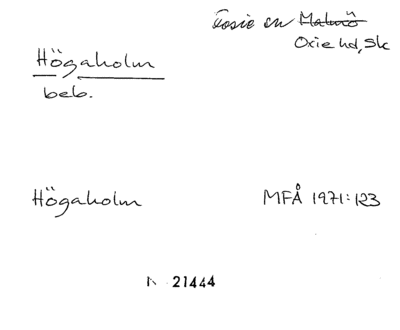 Fosie sn Malmö
Oxie hd, Sk
Högaholm
beb.
Högaholm MFÅ 1971:123
N 21444